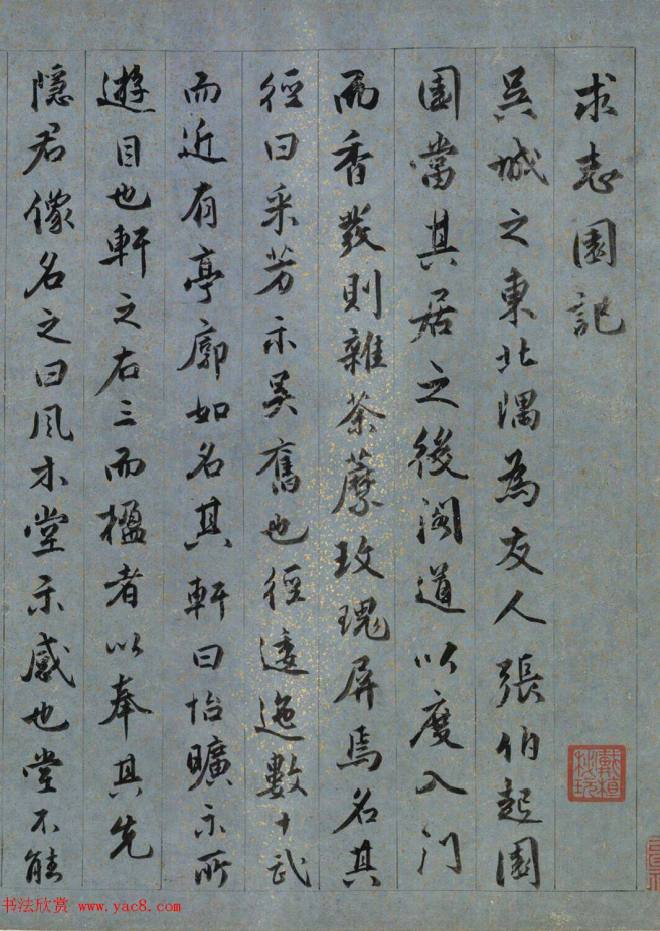 求志園記
吳城之東北隅為友人張伯起園
園當其居之後閣道以度入門
而香發則雜荼蘼玫瑰屏焉名其
徑曰采芳示吳舊也徑逶迤數十武
而近有亭廓如名其軒曰怡曠示所
遊目也軒之右三而楹者以奉其先
隱君像名之曰風木堂示感也堂不能
戴植
书法欣赏 www.yac8.com